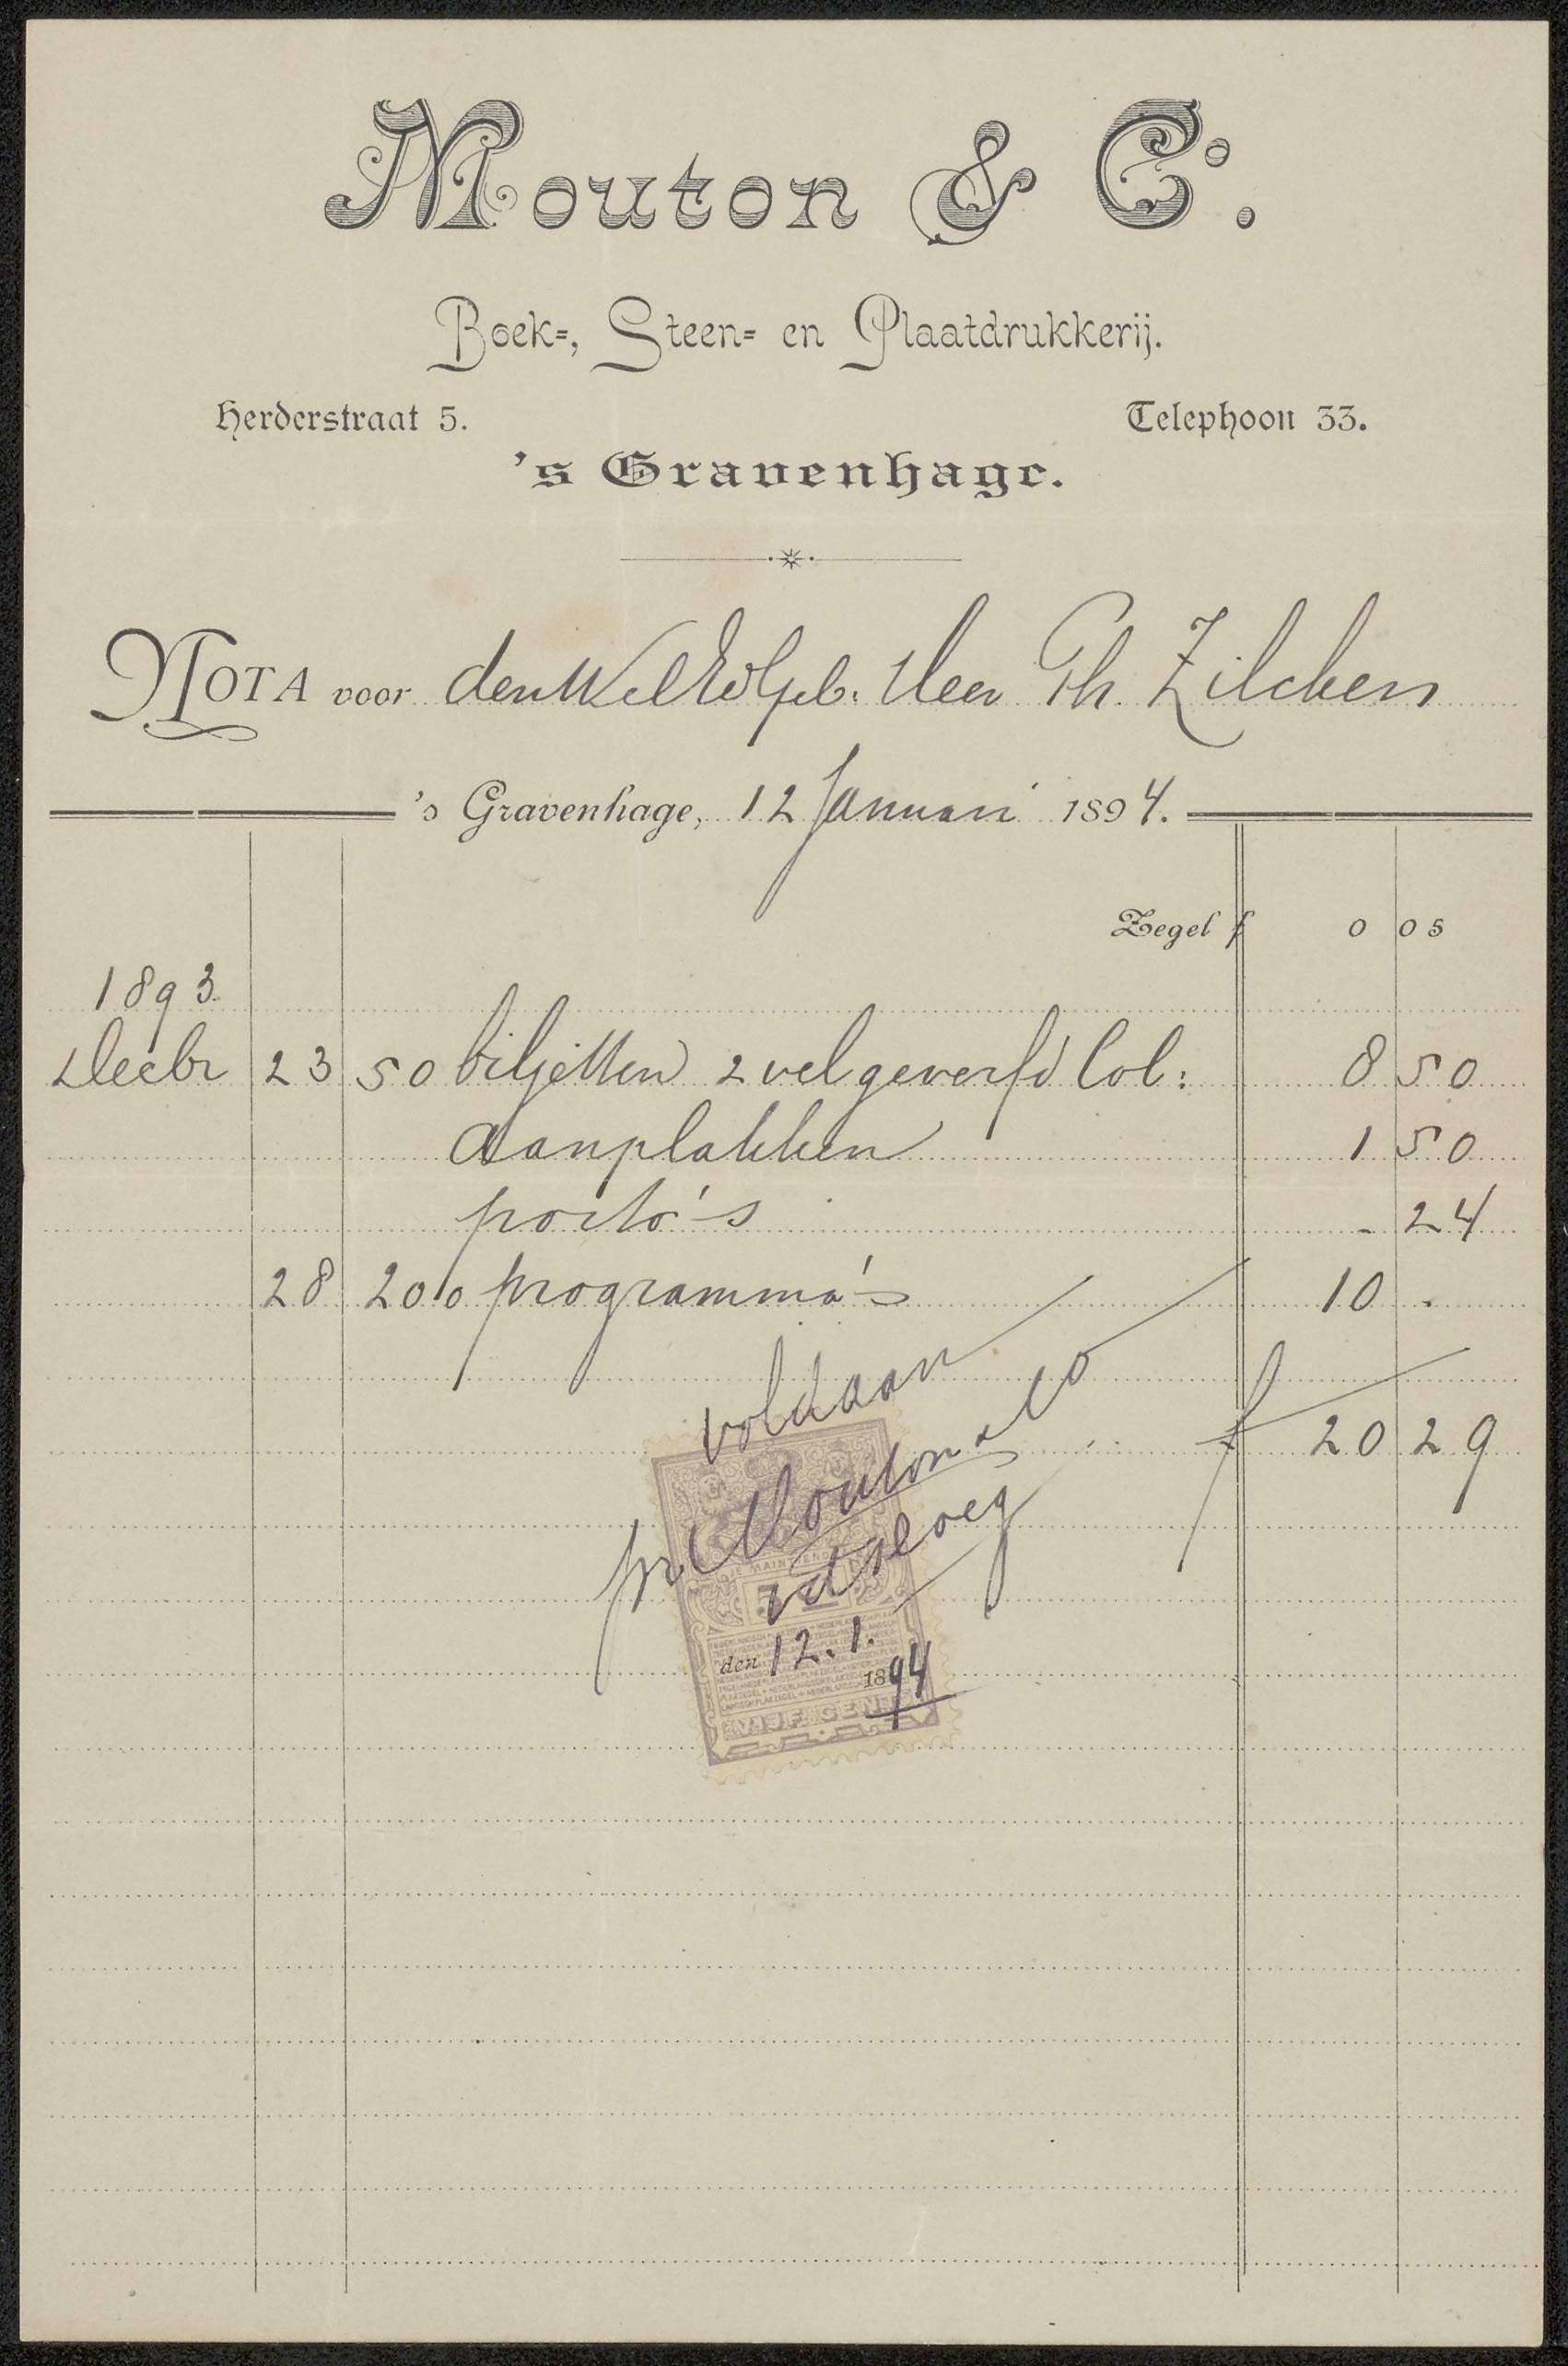 Mouton & Co.
Boek=, Steen= en Plaatdrukkerij.
Herderstraat 5. Telephoon 33.
's Gravenhage.
NOTA voor den WelEdGeb. Heer Ph. Zilcken
's Gravenhage, 12 Januari 1894.
Zegel f 0 05
1893.
Decbr 23 50 biljetten 2 vel geverfd Col: 8 50
Aanplakken 1 50
porto's - 24
28 200 programma's 10 .
f 20 29
voldaan
pr Mouton & Co
den 12.1. 1894
VIJF CENT